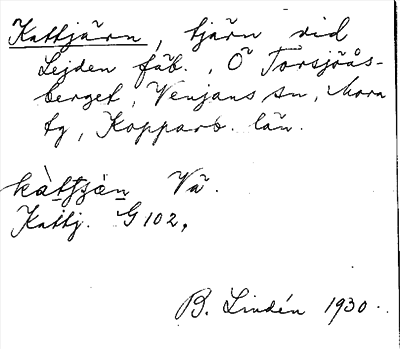 Kattjärn, tjärn vid
Lejden fäb., Ö Torsjöås-
berget, Venjans sn, Mora
tg, Kopparb. län.
Vä.
Kattj. G 102,
B. Lindén 1930.